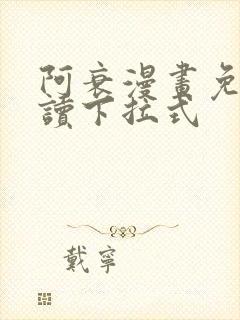 阿衰漫畫免
讀下拉式
戴寧